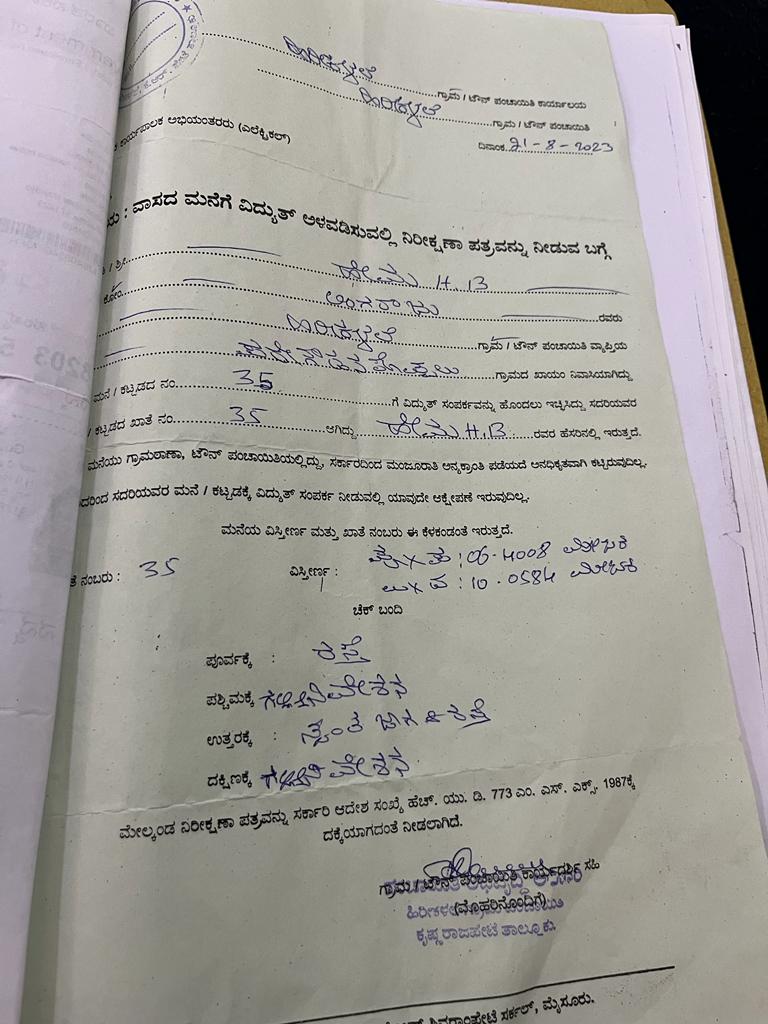 ಹಿರೀಕಳಲೆ ಗ್ರಾಮ / ಟೌನ್ ಪಂಚಾಯಿತಿ ಕಾರ್ಯಾಲಯ
ಹಿರೀಕಳಲೆ ಗ್ರಾಮ / ಟೌನ್ ಪಂಚಾಯಿತಿ
ದಿನಾಂಕ 21-8-2023
ಕಾರ್ಯಪಾಲಕ ಅಭಿಯಂತರರು (ಎಲೆಕ್ಟ್ರಿಕಲ್)
: ವಾಸದ ಮನೆಗೆ ವಿದ್ಯುತ್ ಅಳವಡಿಸುವಲ್ಲಿ ನಿರೀಕ್ಷಣಾ ಪತ್ರವನ್ನು ನೀಡುವ ಬಗ್ಗೆ
/ ಶ್ರೀ ಹೇಮ H.B
ಕೋಂ ರವರು
ಹಿರೀಕಳಲೆ ಗ್ರಾಮ / ಟೌನ್ ಪಂಚಾಯಿತಿ ವ್ಯಾಪ್ತಿಯ
ಗ್ರಾಮದ ಖಾಯಂ ನಿವಾಸಿಯಾಗಿದ್ದು
ಮನೆ / ಕಟ್ಟಡದ ನಂ. 35 ಗೆ ವಿದ್ಯುತ್ ಸಂಪರ್ಕವನ್ನು ಹೊಂದಲು ಇಚ್ಛಿಸಿದ್ದು ಸದರಿಯವರ
/ ಕಟ್ಟಡದ ಖಾತೆ ನಂ. 35 ಆಗಿದ್ದು ಹೇಮ H.B ರವರ ಹೆಸರಿನಲ್ಲಿ ಇರುತ್ತದೆ.
ಮನೆಯು ಗ್ರಾಮಠಾಣಾ, ಟೌನ್ ಪಂಚಾಯಿತಿಯಲ್ಲಿದ್ದು, ಸರ್ಕಾರದಿಂದ ಮಂಜೂರಾತಿ ಅನ್ಯಕ್ರಾಂತಿ ಪಡೆಯದೆ ಅನಧಿಕೃತವಾಗಿ ಕಟ್ಟಿರುವುದಿಲ್ಲ.
ಸದರಿಯವರ ಮನೆ / ಕಟ್ಟಡಕ್ಕೆ ವಿದ್ಯುತ್ ಸಂಪರ್ಕ ನೀಡುವಲ್ಲಿ ಯಾವುದೇ ಆಕ್ಷೇಪಣೆ ಇರುವುದಿಲ್ಲ.
ಮನೆಯ ವಿಸ್ತೀರ್ಣ ಮತ್ತು ಖಾತೆ ನಂಬರು ಈ ಕೆಳಕಂಡಂತೆ ಇರುತ್ತದೆ.
ನಂಬರು : 35 ವಿಸ್ತೀರ್ಣ : ಪೂ x ಪ : 06.4008 ಮೀಟರ್
ಉ x ದ : 10.0584 ಮೀಟರ್
ಚೆಕ್ ಬಂದಿ
ಪೂರ್ವಕ್ಕೆ : ರಸ್ತೆ
ಪಶ್ಚಿಮಕ್ಕೆ ಗಲ್ಲಿ/ನಿವೇಶನ
ಉತ್ತರಕ್ಕೆ : ಸ್ವಂತ ಜಾಗ & ರಸ್ತೆ
ದಕ್ಷಿಣಕ್ಕೆ ಗಲ್ಲಿ/ನಿವೇಶನ
ಮೇಲ್ಕಂಡ ನಿರೀಕ್ಷಣಾ ಪತ್ರವನ್ನು ಸರ್ಕಾರಿ ಆದೇಶ ಸಂಖ್ಯೆ ಹೆಚ್. ಯು. ಡಿ. 773 ಎಂ. ಎಸ್. ಎಕ್ಸ್. 1987ಕ್ಕೆ
ದಕ್ಕೆಯಾಗದಂತೆ ನೀಡಲಾಗಿದೆ.
ಗ್ರಾಮ / ಟೌನ್ ಪಂಚಾಯಿತಿ ಕಾರ್ಯದರ್ಶಿ ಸಹಿ
(ಮೊಹರಿನೊಂದಿಗೆ)
ಕೃಷ್ಣರಾಜಪೇಟೆ ತಾಲ್ಲೂಕು.
ಸರ್ಕಲ್, ಮೈಸೂರು.